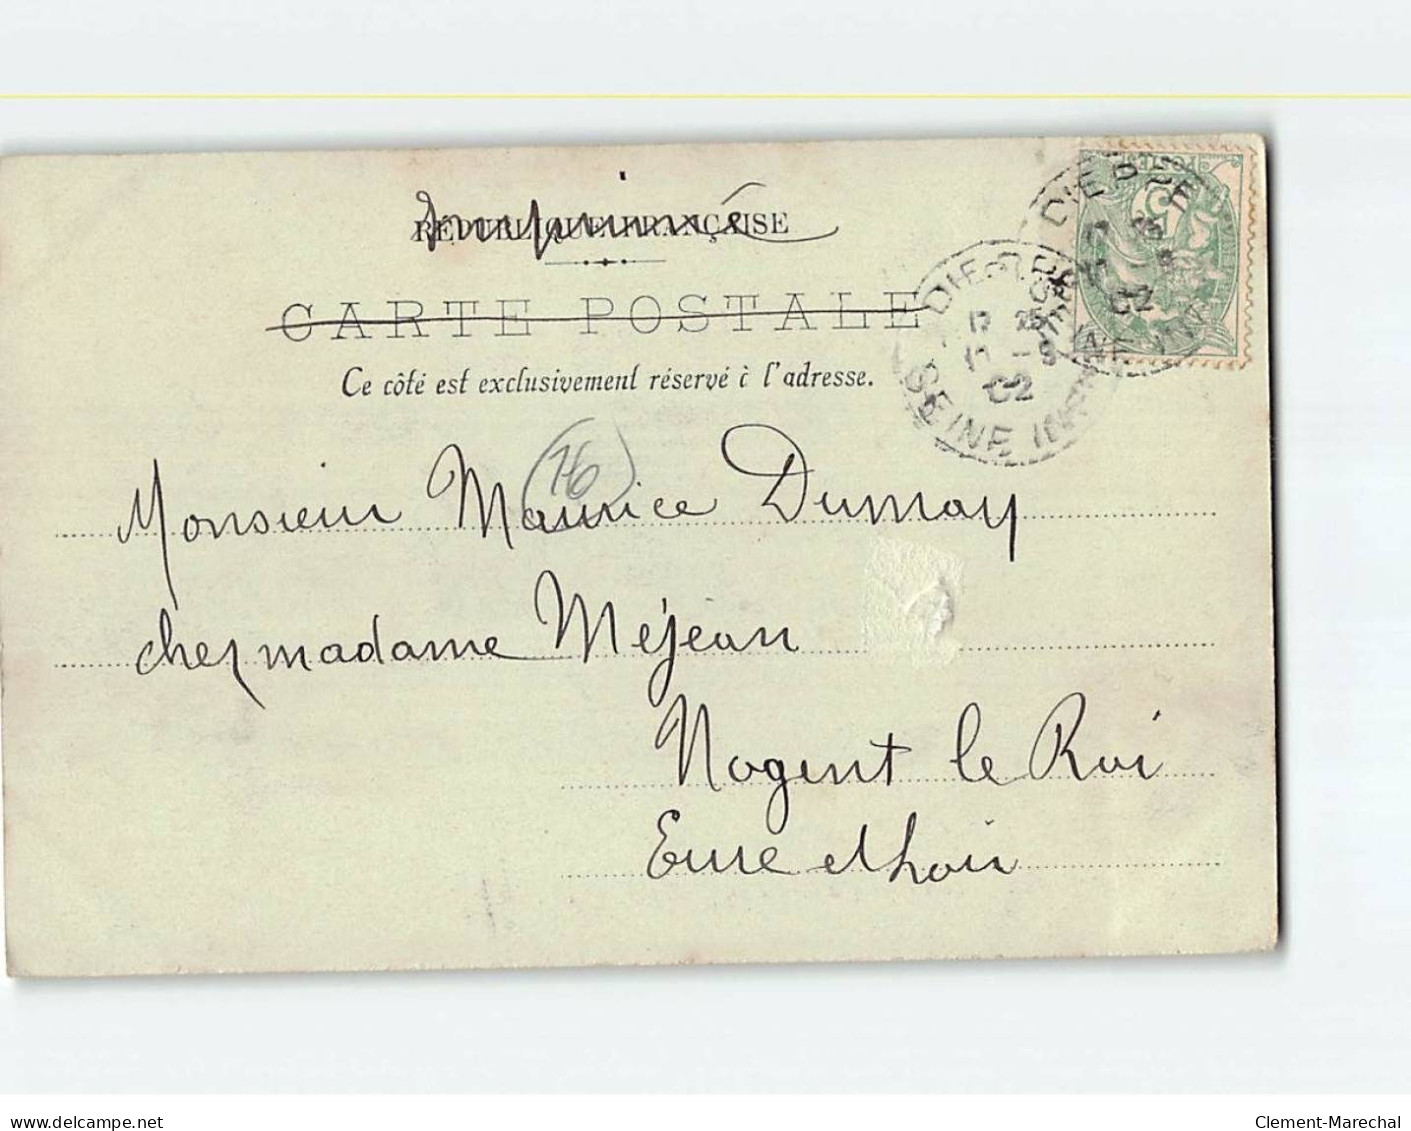 imprimé
RÉPUBLIQUE FRANÇAISE
CARTE POSTALE
Ce côté est exclusivement réservé à l'adresse.
DIEPPE
02
DIEPPE
17 25
02
SEINE INF
POSTES
5
(76)
Monsieur Maurice Dumay
chez madame Méjean
Nogent le Roi
Eure et Loir
delcampe.net
Clement-Marechal